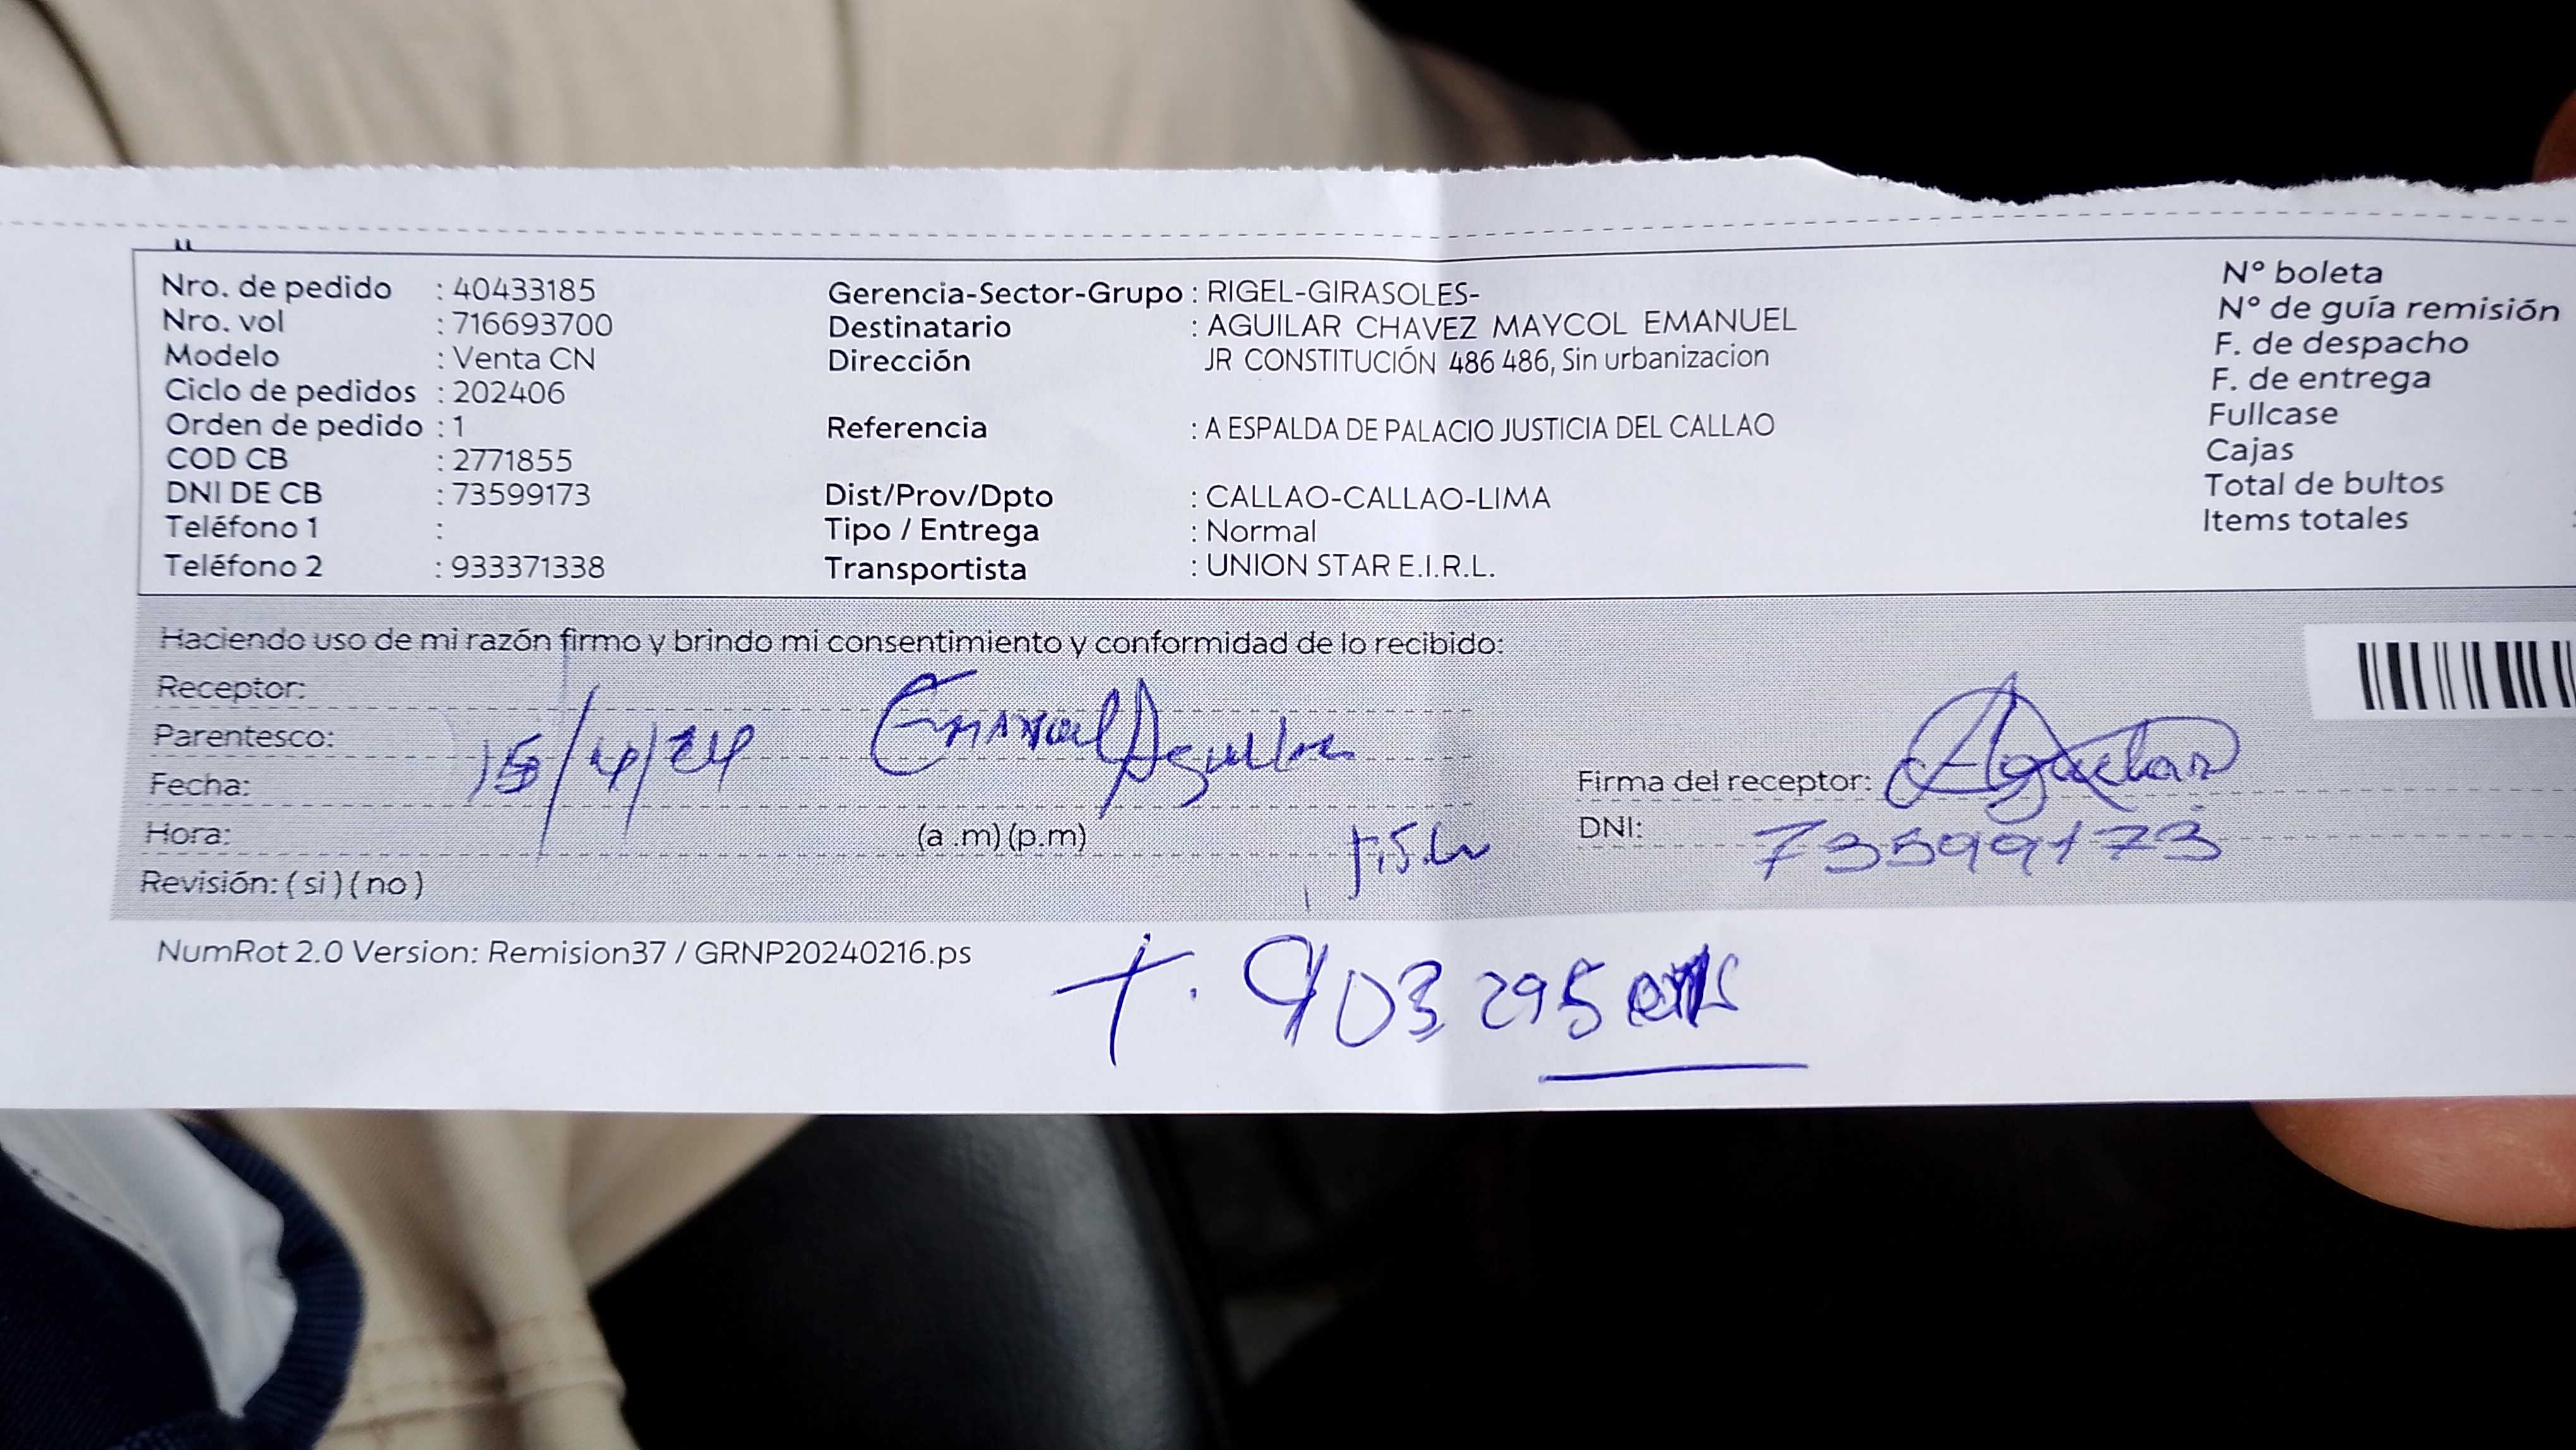 Nro. de pedido : 40433185
Nro. vol : 716693700
Modelo : Venta CN
Ciclo de pedidos : 202406
Orden de pedido : 1
COD CB : 2771855
DNI DE CB : 73599173
Teléfono 1 :
Teléfono 2 : 933371338
Gerencia-Sector-Grupo : RIGEL-GIRASOLES-
Destinatario : AGUILAR CHAVEZ MAYCOL EMANUEL
Dirección JR CONSTITUCIÓN 486 486, Sin urbanizacion
Referencia : A ESPALDA DE PALACIO JUSTICIA DEL CALLAO
Dist/Prov/Dpto : CALLAO-CALLAO-LIMA
Tipo / Entrega : Normal
Transportista : UNION STAR E.I.R.L.
N° boleta
N° de guía remisión
F. de despacho
F. de entrega
Fullcase
Cajas
Total de bultos
Items totales
Haciendo uso de mi razón firmo y brindo mi consentimiento y conformidad de lo recibido:
Receptor:
Parentesco:
15/4/24 Emanuel Aguilar
Fecha:
Hora: (a .m) (p.m)
Revisión: ( si ) ( no )
Firma del receptor: Aguilar
DNI: 73599173
NumRot 2.0 Version: Remision37 / GRNP20240216.ps
t. 903 295